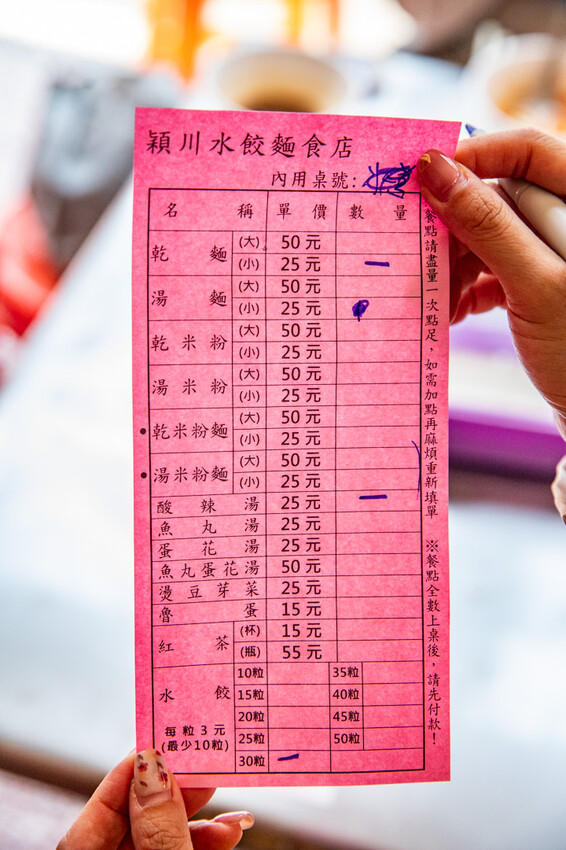 穎川水餃麵食店
內用桌號:
名 稱 單 價 數 量
乾 麵 (大) 50 元
(小) 25 元 一
湯 麵 (大) 50 元
(小) 25 元
乾 米 粉 (大) 50 元
(小) 25 元
湯 米 粉 (大) 50 元
(小) 25 元
•乾米粉麵 (大) 50 元
(小) 25 元
•湯米粉麵 (大) 50 元
(小) 25 元
酸 辣 湯 25 元 一
魚 丸 湯 25 元
蛋 花 湯 25 元
魚丸蛋花湯 50 元
燙豆芽菜 25 元
魯 蛋 15 元
紅 茶 (杯) 15 元
(瓶) 55 元
水 餃
每 粒 3 元
(最少10粒)
10粒 35粒
15粒 40粒
20粒 45粒
25粒 50粒
30粒 一
餐點請盡量一次點足，如需加點再麻煩重新填單 ※餐點全數上桌後，請先付款！